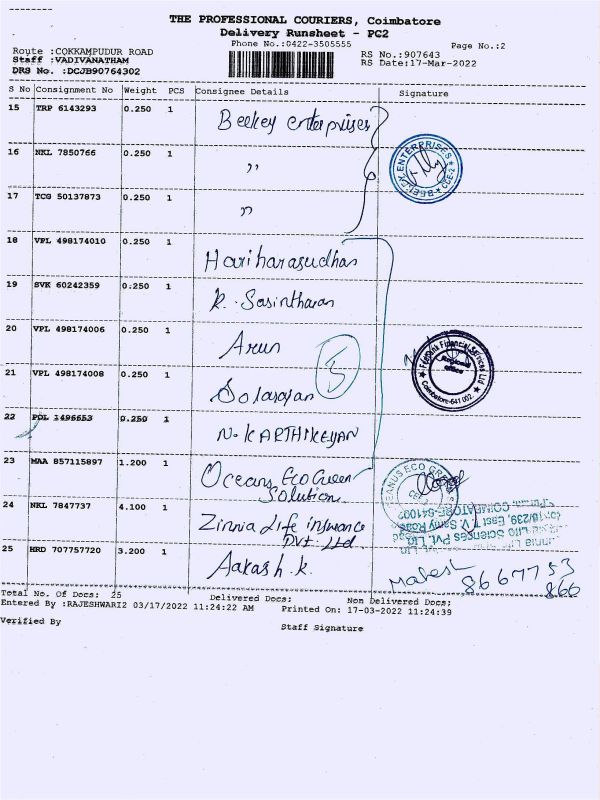 THE PROFESSIONAL COURIERS, Coimbatore
Delivery Runsheet - PC2
Phone No.:0422-3505555
Page No.:2
Route :COKKAMPUDUR ROAD
Staff :VADIVANATHAM
DRS No. :DCJB90764302
RS No.:907643
RS Date:17-Mar-2022
S No Consignment No Weight PCS Consignee Details Signature
15 TRP 6143293 0.250 1 Beekey enterprises
BEEKEY ENTERPRISES CBE-2
16 NKL 7850766 0.250 1 ,,
17 TCG 50137873 0.250 1 ,,
18 VPL 498174010 0.250 1 Hariharasudhan
19 SVK 60242359 0.250 1 K. Sasintharan
20 VPL 498174006 0.250 1 Arun
5
Financial Services Ltd
Regional Office
Coimbatore-641 002.
21 VPL 498174008 0.250 1
22 PDL 1496653 0.250 1 N. KARTHIKEYAN
23 MAA 857115897 1.200 1 Oceans Eco Green
Solution
24 NKL 7847737 4.100 1 Zinnia Life insurance
Pvt. Ltd
Life Sciences Pvt. Ltd.
East T.V. Samy Road
COIMBATORE-641002
25 HRD 707757720 3.200 1 Aakash. K.
Mahesh
8667753
866
Total No. Of Docs: 25 Delivered Docs: Non Delivered Docs:
Entered By :RAJESHWARI2 03/17/2022 11:24:22 AM Printed On: 17-03-2022 11:24:39
Verified By
Staff Signature